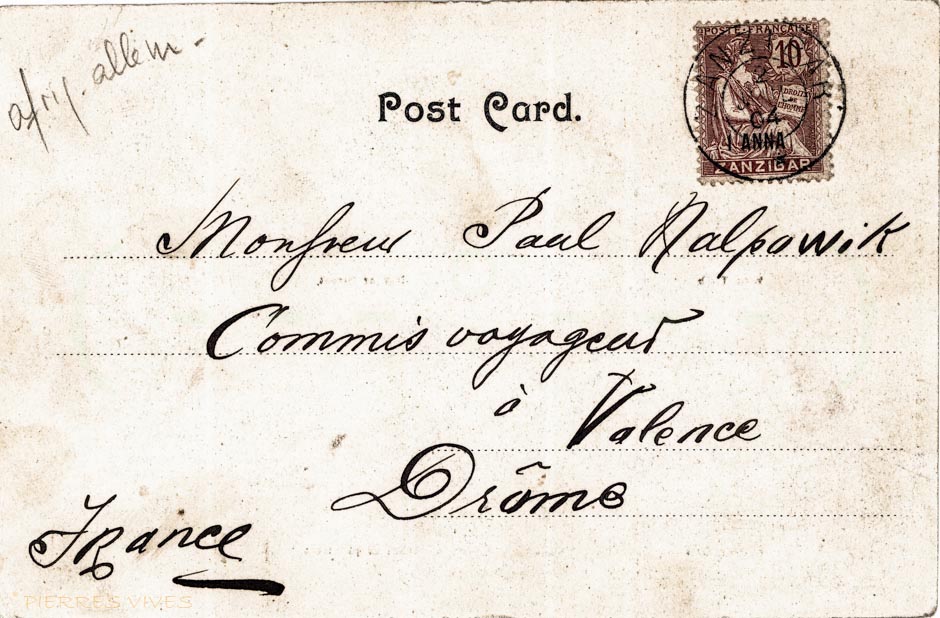 afriq. allem.
Post Card.
POSTE FRANÇAISE
10
DROITS
DE
L'HOMME
ZANZIBAR
04
1 ANNA
ZANZIBAR
Monsieur Paul Nalpowik
Commis voyageur
à Valence
Drôme
France
PIERRES VIVES